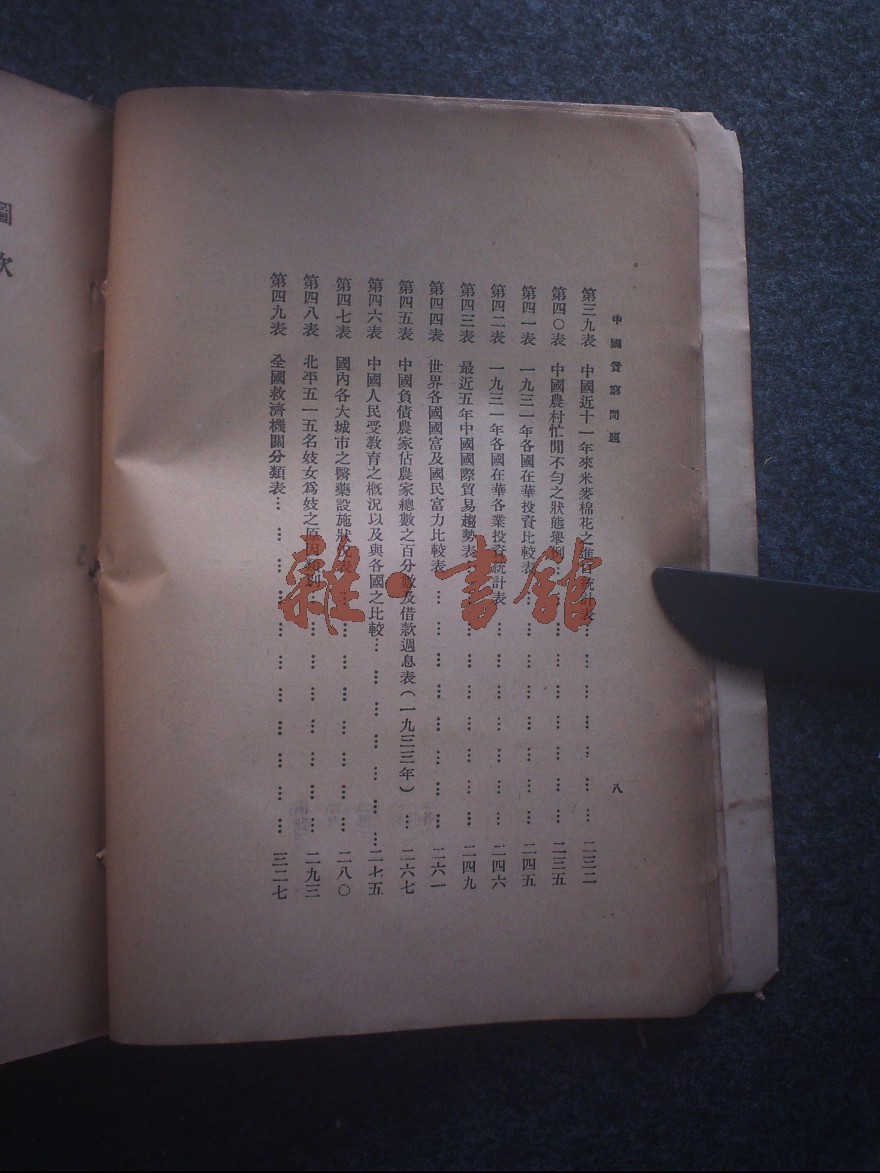 中國貧窮問題
八
第三九表 中國近十一年來米麥棉花之進口統計表 … … … … … … 二三二
第四〇表 中國農村忙閒不勻之狀態舉例 … … … … … … … 二三五
第四一表 一九三一年各國在華投資比較表 … … … … … … … 二四五
第四二表 一九三一年各國在華各業投資統計表 … … … … … … 二四六
第四三表 最近五年中國國際貿易趨勢表 … … … … … … … … 二四九
第四四表 世界各國國富及國民富力比較表 … … … … … … … … 二六一
第四五表 中國負債農家佔農家總數之百分數及借款週息表(一九三三年) … 二六七
第四六表 中國人民受教育之概況以及與各國之比較 … … … … … … … 二七五
第四七表 國內各大城市之醫藥設施狀況表 … … … … … … … … 二八〇
第四八表 北平五一五名妓女爲妓之原因 … … … … … … … … 二九三
第四九表 全國救濟機關分類表 … … … … … … … … … … … 三二七
圖
次
雜·書館